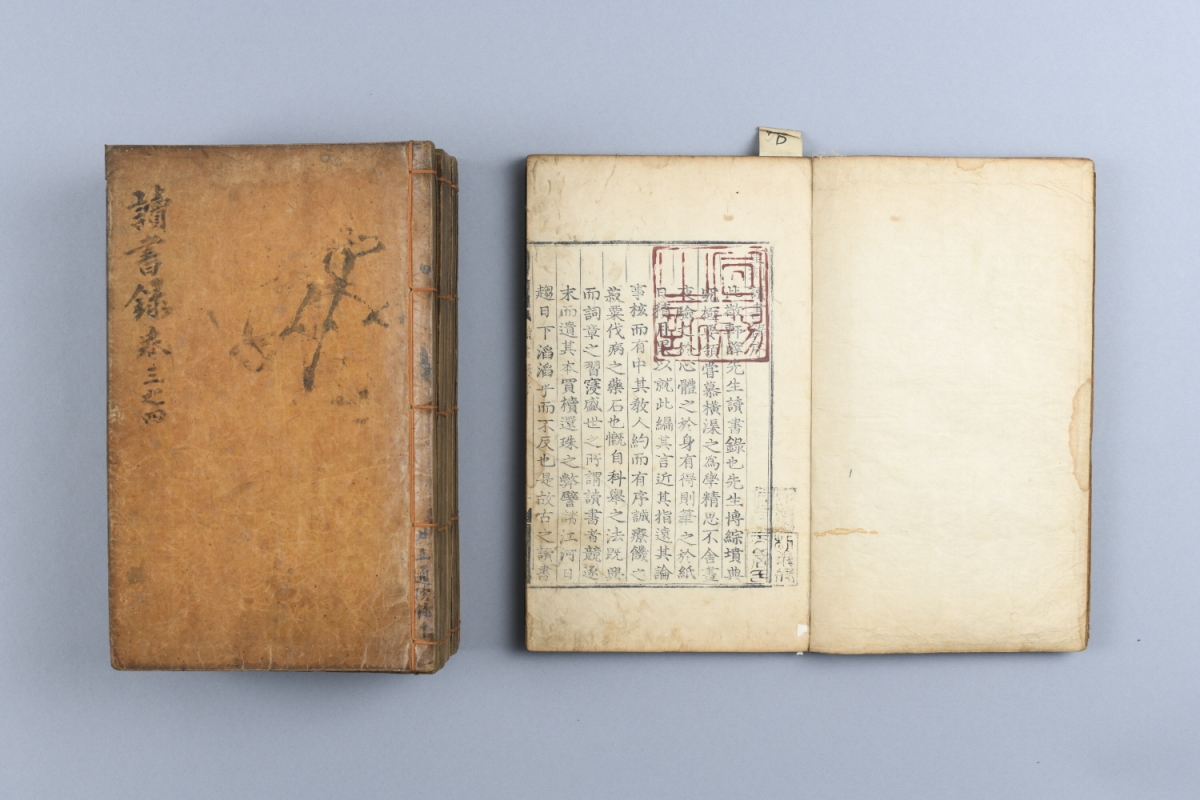 讀書錄 卷三之四
宣賜之記
此敬軒薛先生讀書錄也先生博綜墳典
嘗慕橫渠之為學精思不舍晝
夜驗之於心體之於身有得則筆之於紙
日積月累以就此編其言近其指遠其論
事核而有中其教人約而有序誠療饑之
菽粟伐病之藥石也慨自科舉之法既興
而詞章之習寖盛世之所謂讀書者競逐
末而遺其本買櫝還珠之弊譬諸江河日
趨日下滔滔乎而不反也是故古之讀書